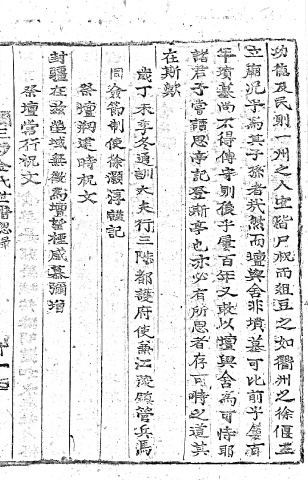 功德及民則一州之人宜皆尸祝而俎豆之如衢州之徐偃王
立廟況乎爲其子孫者哉然而壇與舍非墳墓可比前乎屢百
年墳墓尚不得傳守則後乎屢百年又敢以壇與舍而可恃耶
諸君子嘗語思亭記登斯亭也亦必有所思者存可恃之道其
在斯歟
歲丁未季冬通訓大夫行三陟都護府使兼江陵鎭管兵馬
同僉節制使徐灝淳謹記
祭壇刱建時祝文
封疆在玆塋域無徵爲壇望極感慕彌增
祭壇常行祝文